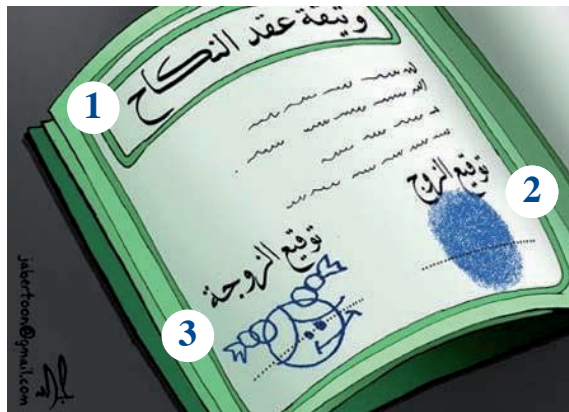 وثيقة عقد النكاح
1
توقيع الزوج
2
توقيع الزوجة
3
jabertoon@gmail.com